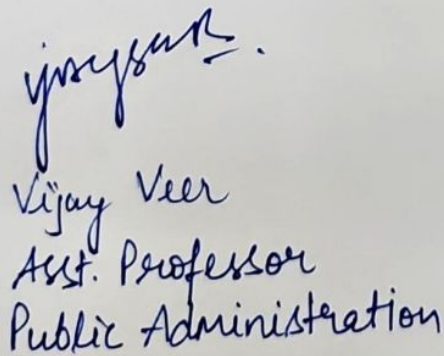 Vijay Veer
Asst. Professor
Public Administration